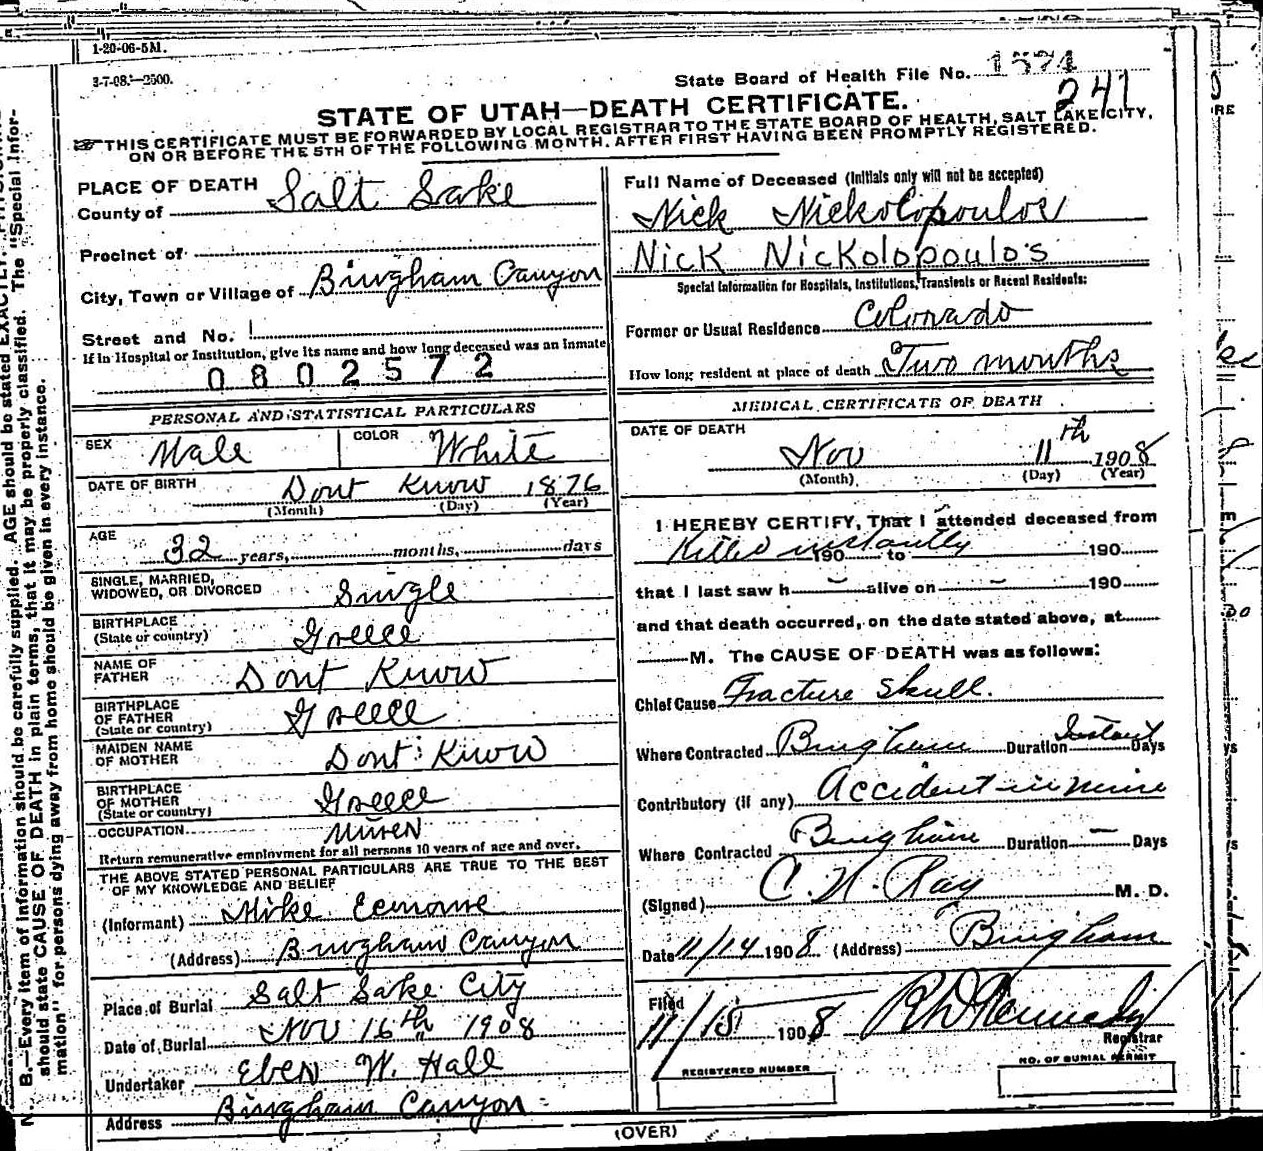 1-20-06-5M.
3-7-08.—2500.
State Board of Health File No. 1574
241
STATE OF UTAH—DEATH CERTIFICATE.
THIS CERTIFICATE MUST BE FORWARDED BY LOCAL REGISTRAR TO THE STATE BOARD OF HEALTH, SALT LAKE CITY,
ON OR BEFORE THE 5TH OF THE FOLLOWING MONTH, AFTER FIRST HAVING BEEN PROMPTLY REGISTERED.
PLACE OF DEATH
County of Salt Lake
Precinct of
City, Town or Village of Bingham Canyon
Street and No.
If in Hospital or Institution, give its name and how long deceased was an Inmate
0802572
Full Name of Deceased (Initials only will not be accepted)
Nick Nickolopoulos
Nick Nickolopoulos
Special Information for Hospitals, Institutions, Transients or Recent Residents:
Former or Usual Residence Colorado
How long resident at place of death Two months
PERSONAL AND STATISTICAL PARTICULARS
SEX Male COLOR White
DATE OF BIRTH Dont Know 1876
(Month) (Day) (Year)
AGE 32 years, months, days
SINGLE, MARRIED,
WIDOWED, OR DIVORCED Single
BIRTHPLACE
(State or country) Greece
NAME OF
FATHER Dont Know
BIRTHPLACE
OF FATHER
(State or country) Greece
MAIDEN NAME
OF MOTHER Dont Know
BIRTHPLACE
OF MOTHER
(State or country) Greece
OCCUPATION Miner
Return remunerative employment for all persons 10 years of age and over.
THE ABOVE STATED PERSONAL PARTICULARS ARE TRUE TO THE BEST
OF MY KNOWLEDGE AND BELIEF
(Informant) Mike
(Address) Bingham Canyon
Place of Burial Salt Lake City
Date of Burial Nov 16th 1908
Undertaker Eber W. Hall
Address Bingham Canyon
MEDICAL CERTIFICATE OF DEATH
DATE OF DEATH
Nov 11th 1908
(Month) (Day) (Year)
I HEREBY CERTIFY, That I attended deceased from
Killed instantly 190 to 190
that I last saw h — alive on — 190
and that death occurred, on the date stated above, at
M. The CAUSE OF DEATH was as follows:
Chief Cause Fracture Skull.
Where Contracted Bingham Duration Instant Days
Contributory (if any) Accident in mine
Where Contracted Bingham Duration — Days
(Signed) C. N. Ray M. D.
Date 11/14 1908 (Address) Bingham
Filed
11/15 1908 R D Kennedy
Registrar
REGISTERED NUMBER
NO. OF BURIAL PERMIT
(OVER)
N. B.—Every item of information should be carefully supplied. AGE should be stated EXACTLY.
should state CAUSE OF DEATH in plain terms, that it may be properly classified. The "Special Infor-
mation" for persons dying away from home should be given in every instance.